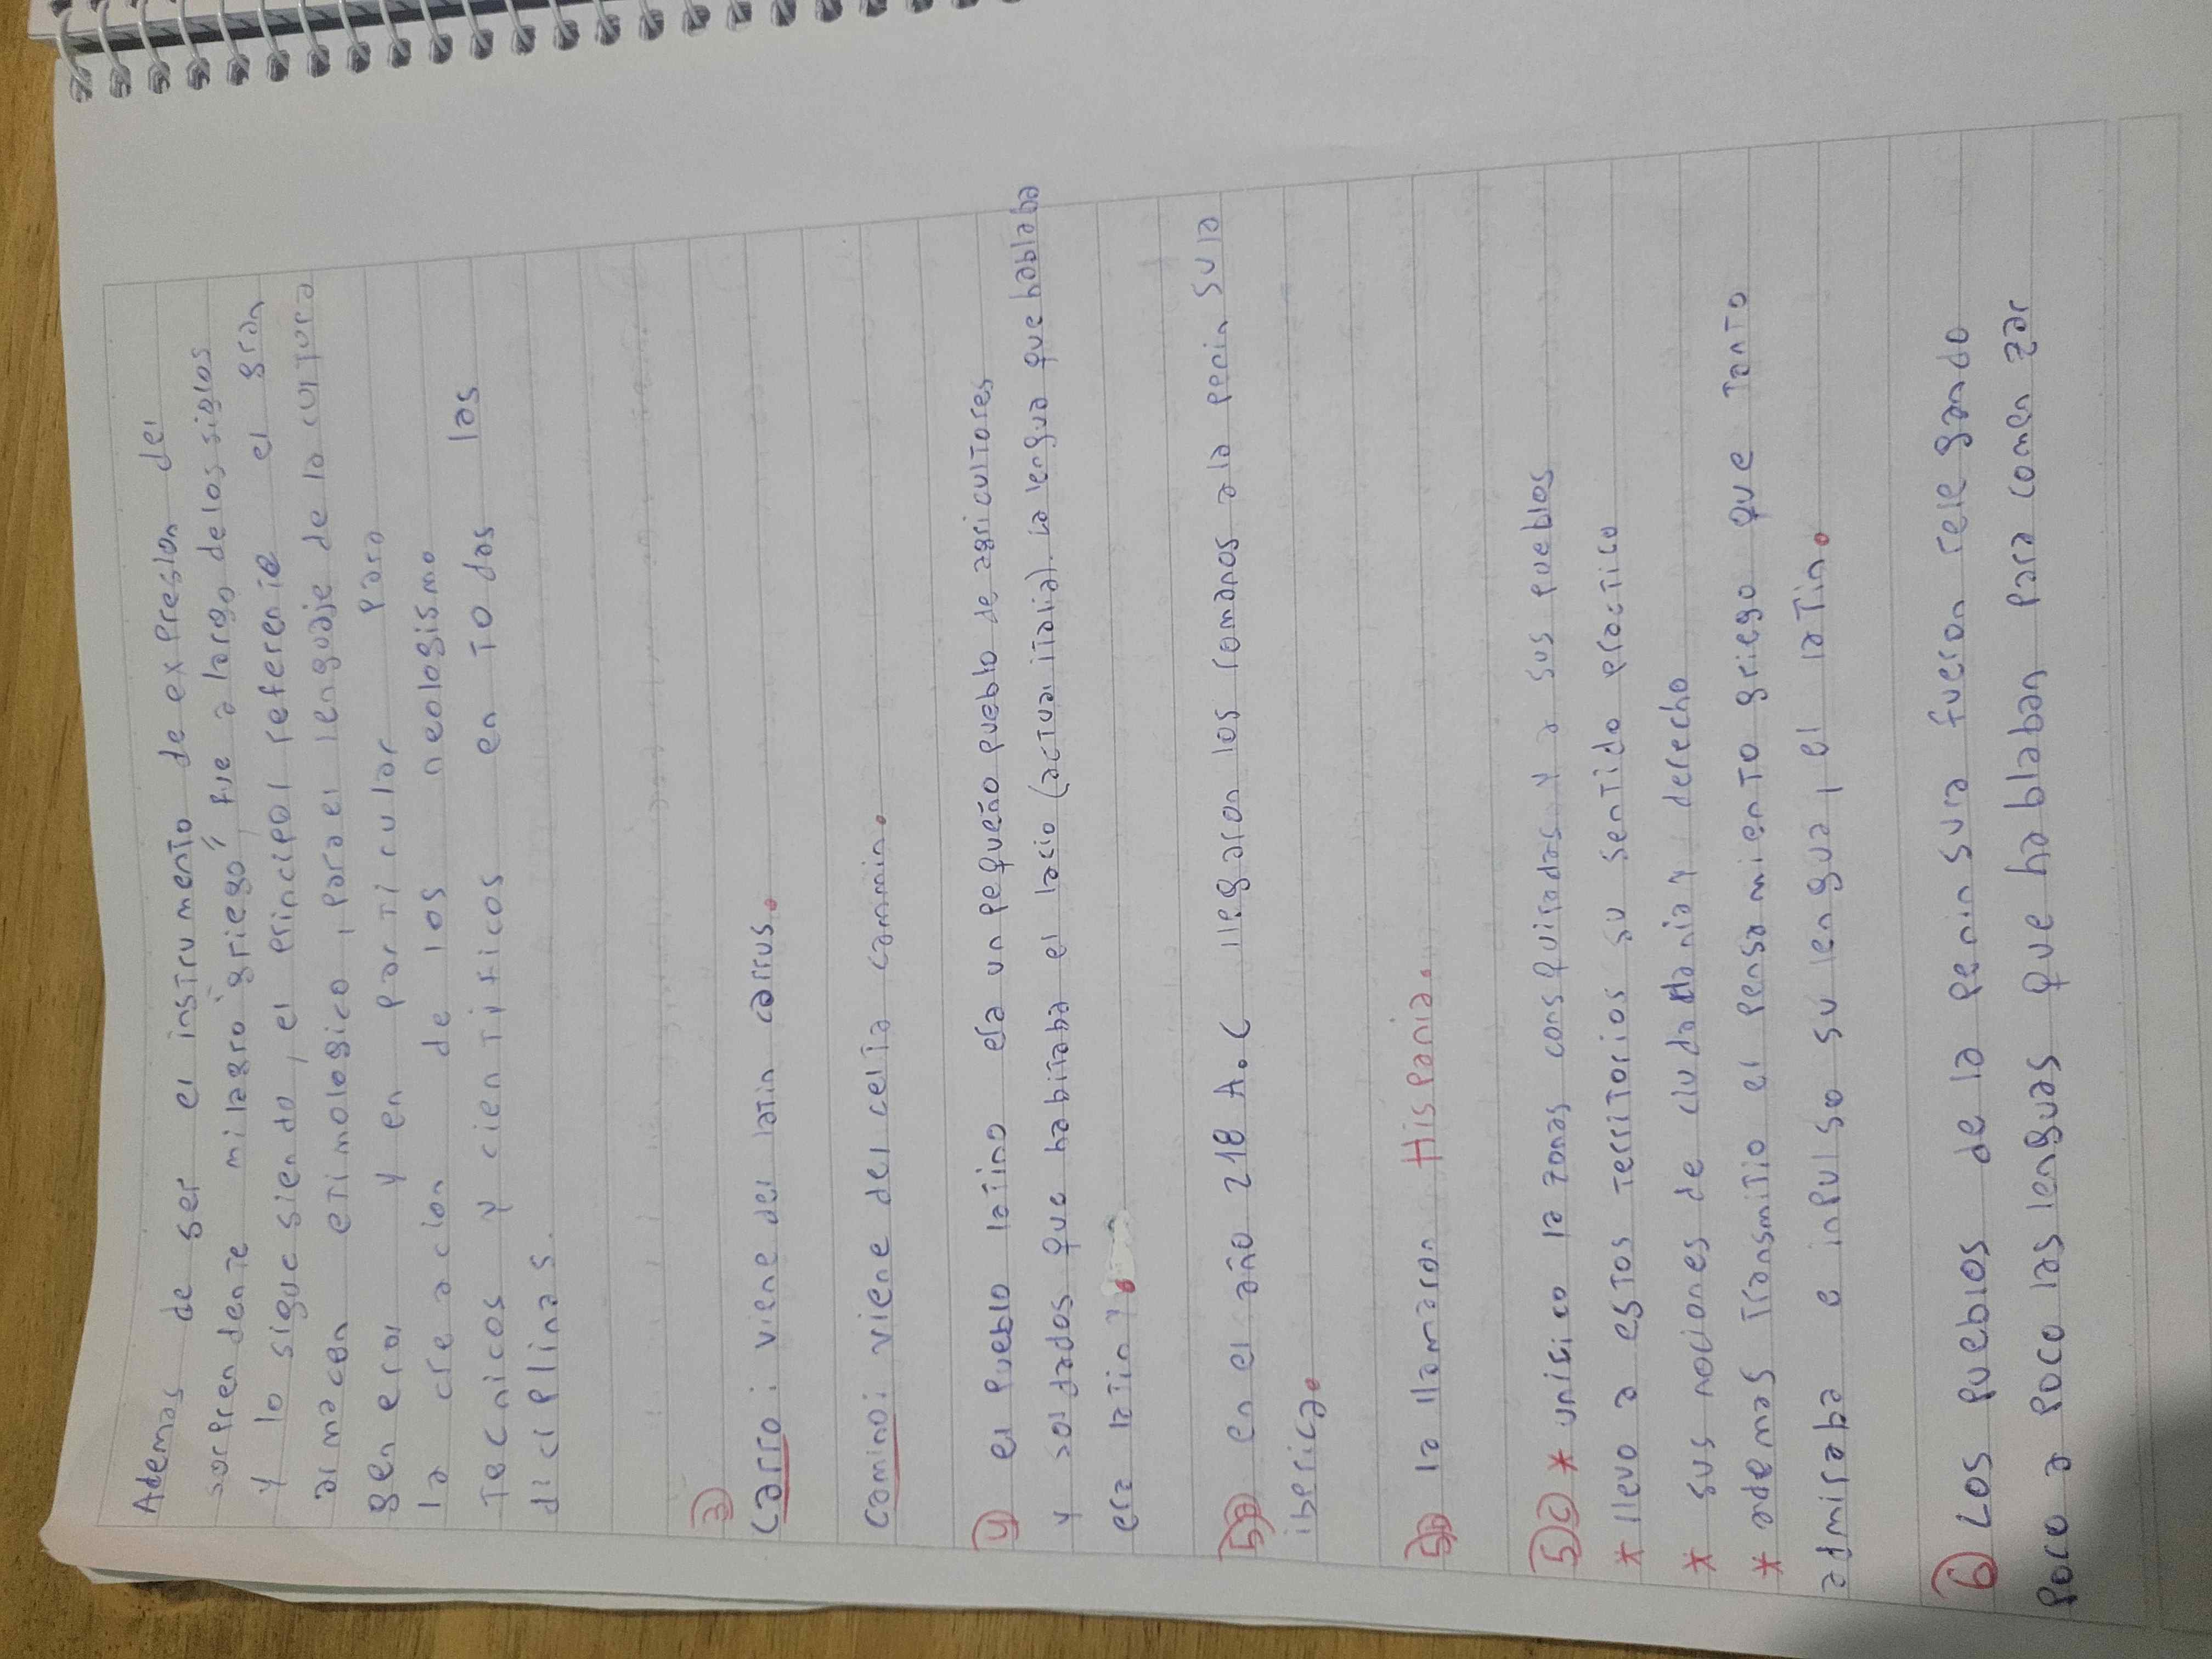 Ademas de ser el instrumento de expresion del
sorprendente milagro "griego" fue a largo delos siglos
y lo sigue siendo, el principal referente el gran
armacen etimologico, para el lenguaje de la cultura
general y en particular para
la creacion de los neologismo
Tecnicos y cientificos en Todas las
diciplinas.
3)
Carro: viene del latin carrus.
Camino: viene del celta cammin.
4) el Pueblo latino era un pequeño pueblo de agricultores
y soldados que habitaba el lacio (actual italia). la lengua que hablaba
era latin?.
5)a en el año 218 A.C llegaron los romanos a la penin sula
iberica.
5)b la llamaron Hispania.
5)c * unifico la zonas consquiradas y a sus pueblos
* llevo a estos territorios su sentido practico
* sus nociones de ciudadania y derecho
* ademas Transmitio el pensamiento griego que Tanto
admiraba e inpulso su lengua, el latin.
6) Los pueblos de la peninsula fueron relegando
poco a poco las lenguas que hablaban para comenzar